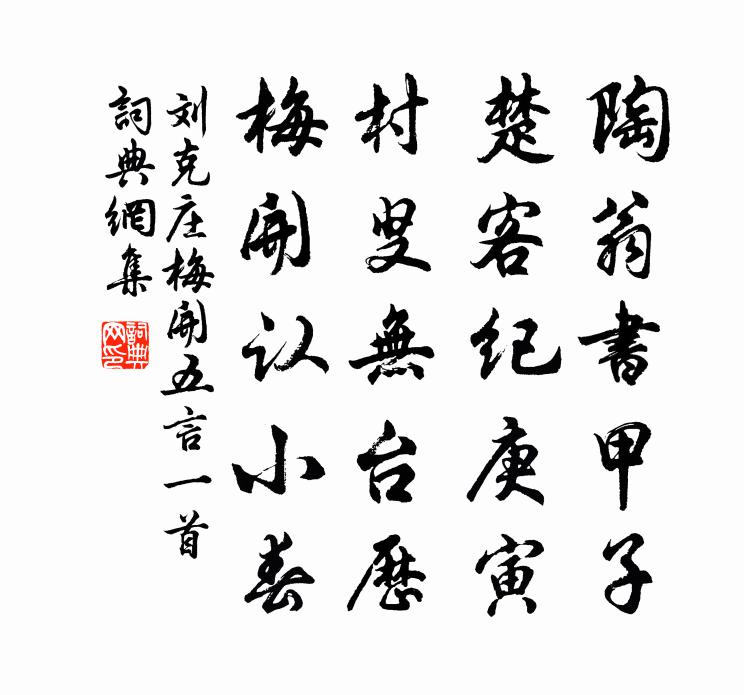 陶翁書甲子
楚客纪庚寅
村叟無台歷
梅開认小春
刘克庄梅開五言一首
詞典網集
詞典網印